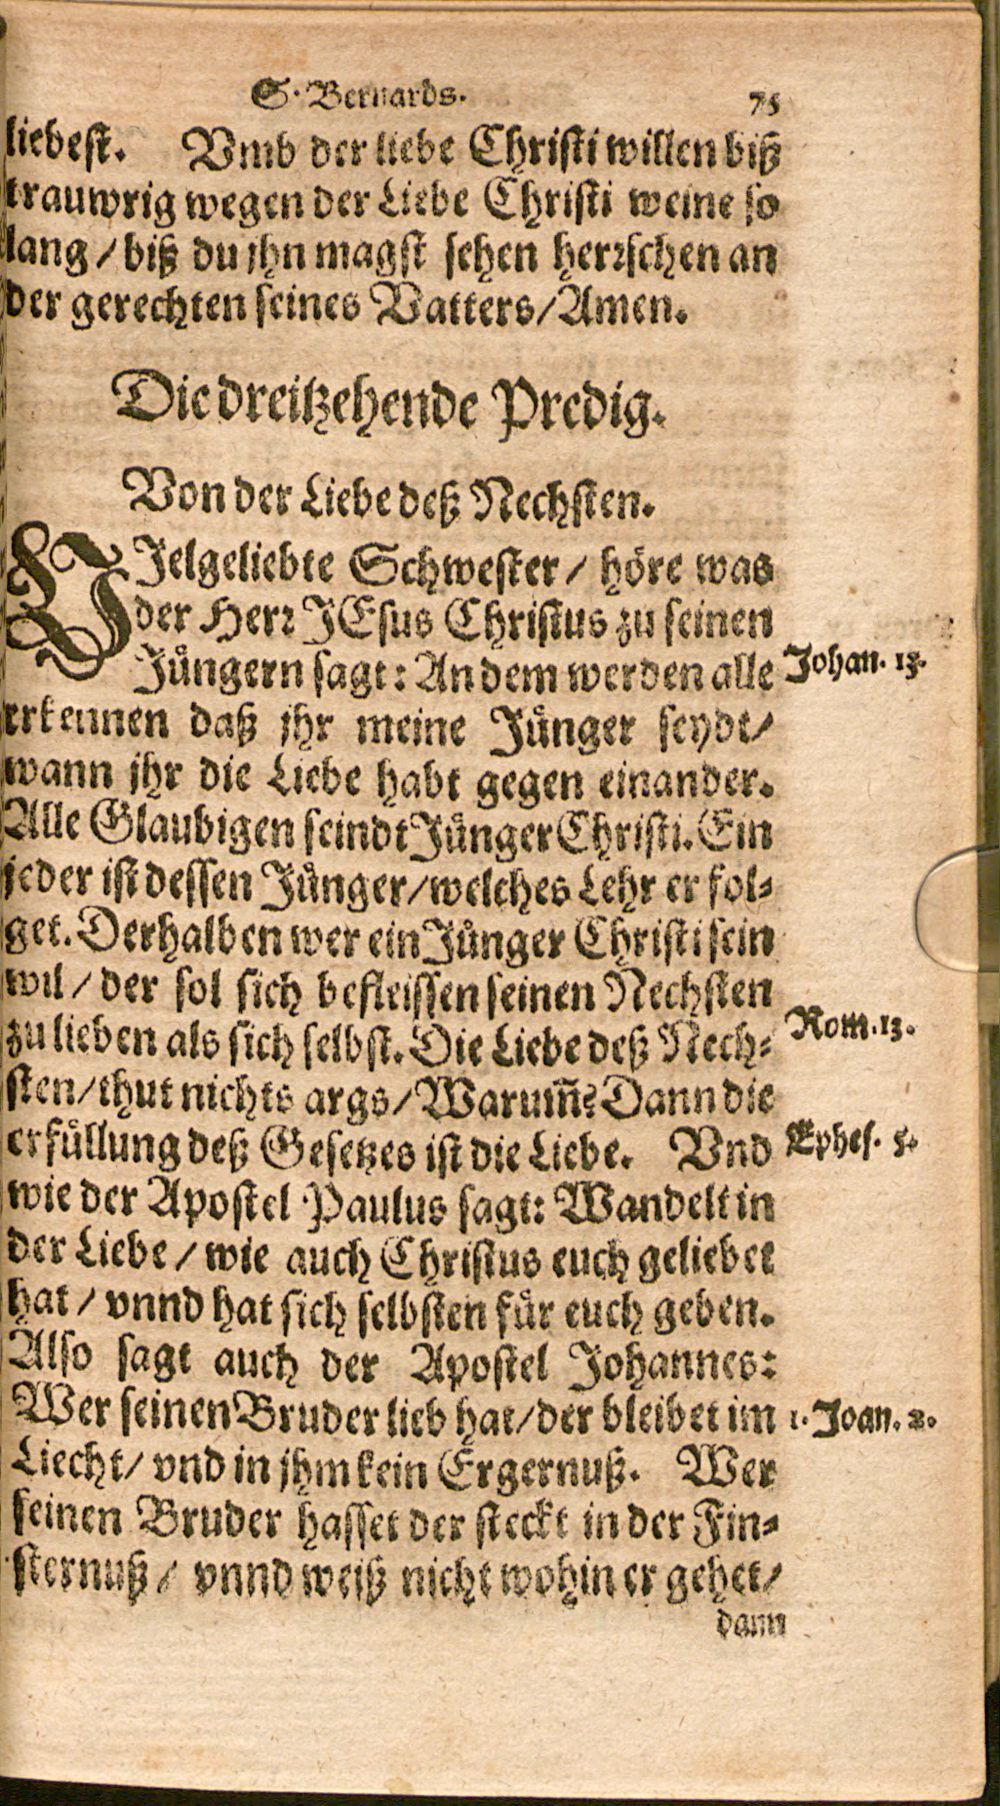 S. Bernards. 75
liebest. Vmb der liebe Christi willen biß
trauwrig wegen der Liebe Christi weine so
lang / biß du jhn magst sehen herrschen an
der gerechten seines Vatters / Amen.
Die dreitzehende Predig.
Von der Liebe deß Nechsten.
VIelgeliebte Schwester / höre was
der Herr JEsus Christus zu seinen
Jüngern sagt: An dem werden alle Johan. 13.
erkennen daß jhr meine Jünger seydt /
wann jhr die Liebe habt gegen einander.
Alle Glaubigen seindt Jünger Christi. Ein
jeder ist dessen Jünger / welches Lehr er fol-
get. Derhalben wer ein Jünger Christi sein
wil / der sol sich befleissen seinen Nechsten
zu lieben als sich selbst. Die Liebe deß Nech- Rom. 13.
sten / thut nichts args / Warum̃? Dann die
erfüllung deß Gesetzes ist die Liebe. Vnd Ephes. 5.
wie der Apostel Paulus sagt: Wandelt in
der Liebe / wie auch Christus euch geliebet
hat / vnnd hat sich selbsten für euch geben.
Also sagt auch der Apostel Johannes:
Wer seinen Bruder lieb hat / der bleibet im 1. Joan. 2.
Liecht / vnd in jhm kein Ergernuß. Wer
seinen Bruder hasset der steckt in der Fin-
sternuß / vnnd weiß nicht wohin er gehet /
dann